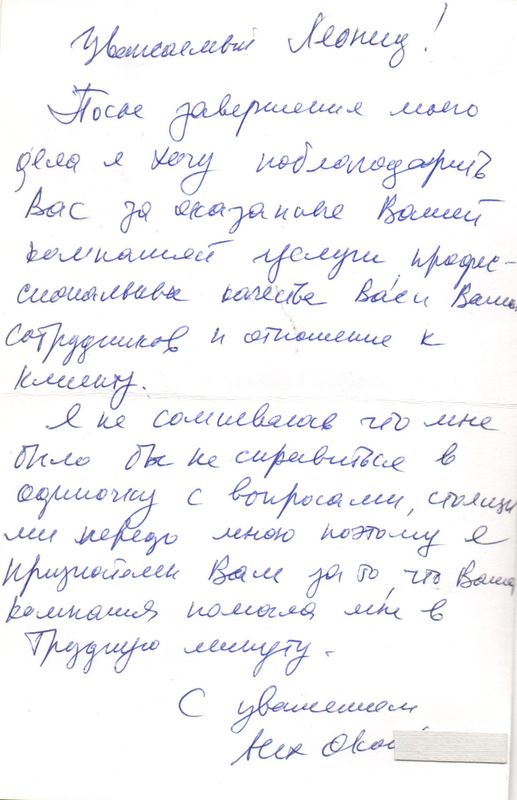 Уважаемый Леонид!
После завершения моего
дела я хочу поблагодарить
Вас за оказанные Вашей
компанией услуги, профес-
сиональные качества Вас и Ваших
сотрудников и отношение к
клиенту.
Я не сомневаюсь что мне
было бы не справиться в
одиночку с вопросами, стоящи
ми передо мною поэтому я
признателен Вам за то, что Ваша
компания помогла мне в
трудную минуту.
С уважением